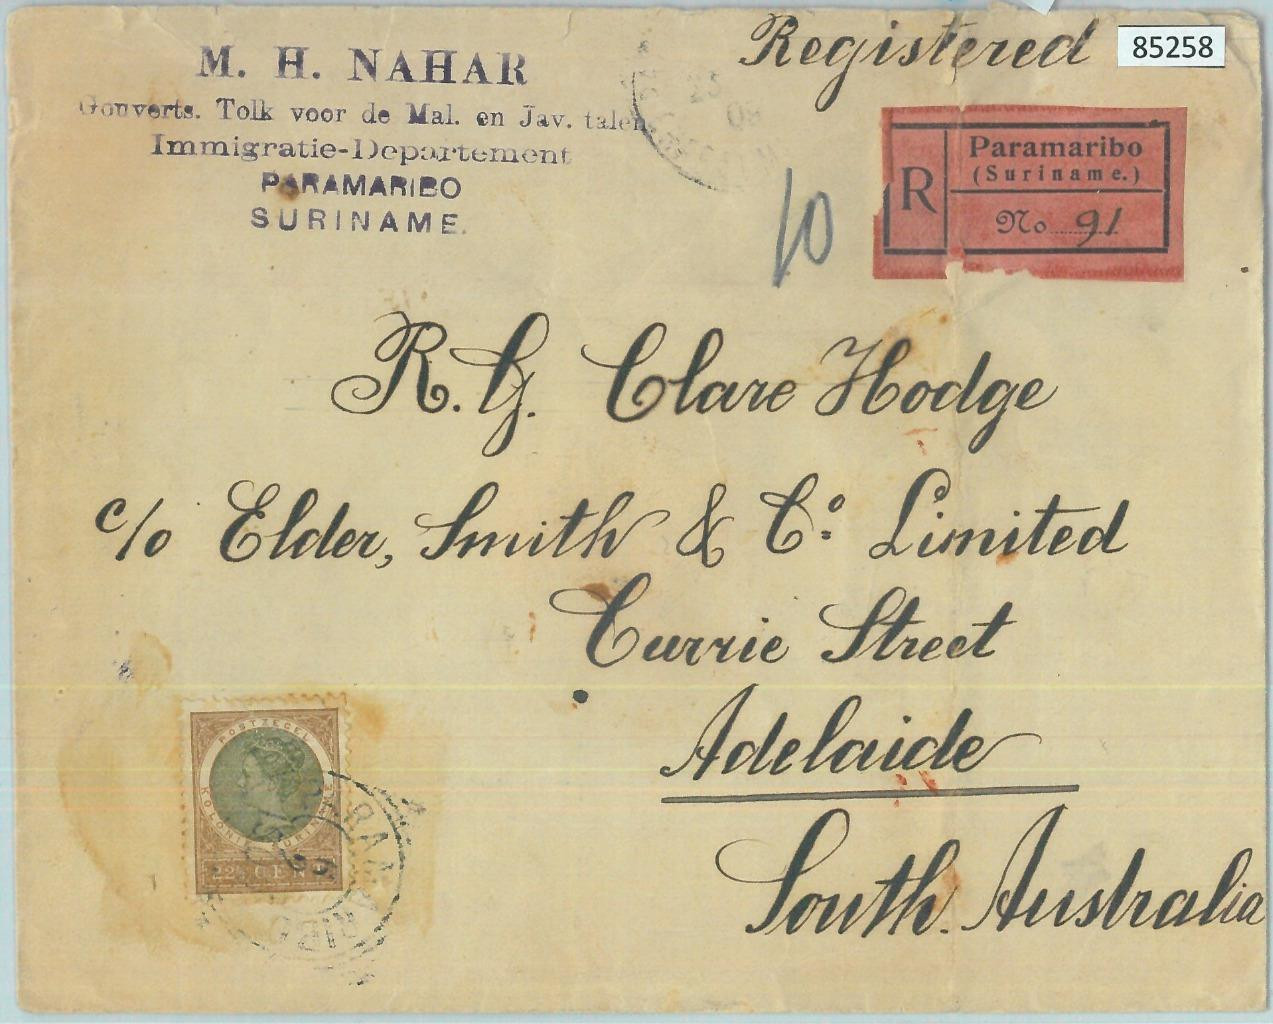 Registered
85258
M. H. NAHAR
Gouverts. Tolk voor de Mal. en Jav. talen
Immigratie-Departement
PARAMARIBO
SURINAME.
R
Paramaribo
(Suriname.)
No 91
10
R. G. Clare Hodge
c/o Elder, Smith & Co. Limited
Currie Street
Adelaide
South Australia
POSTZEGEL
KOLONIE SURINAME
22½ CENT
PARAMARIBO